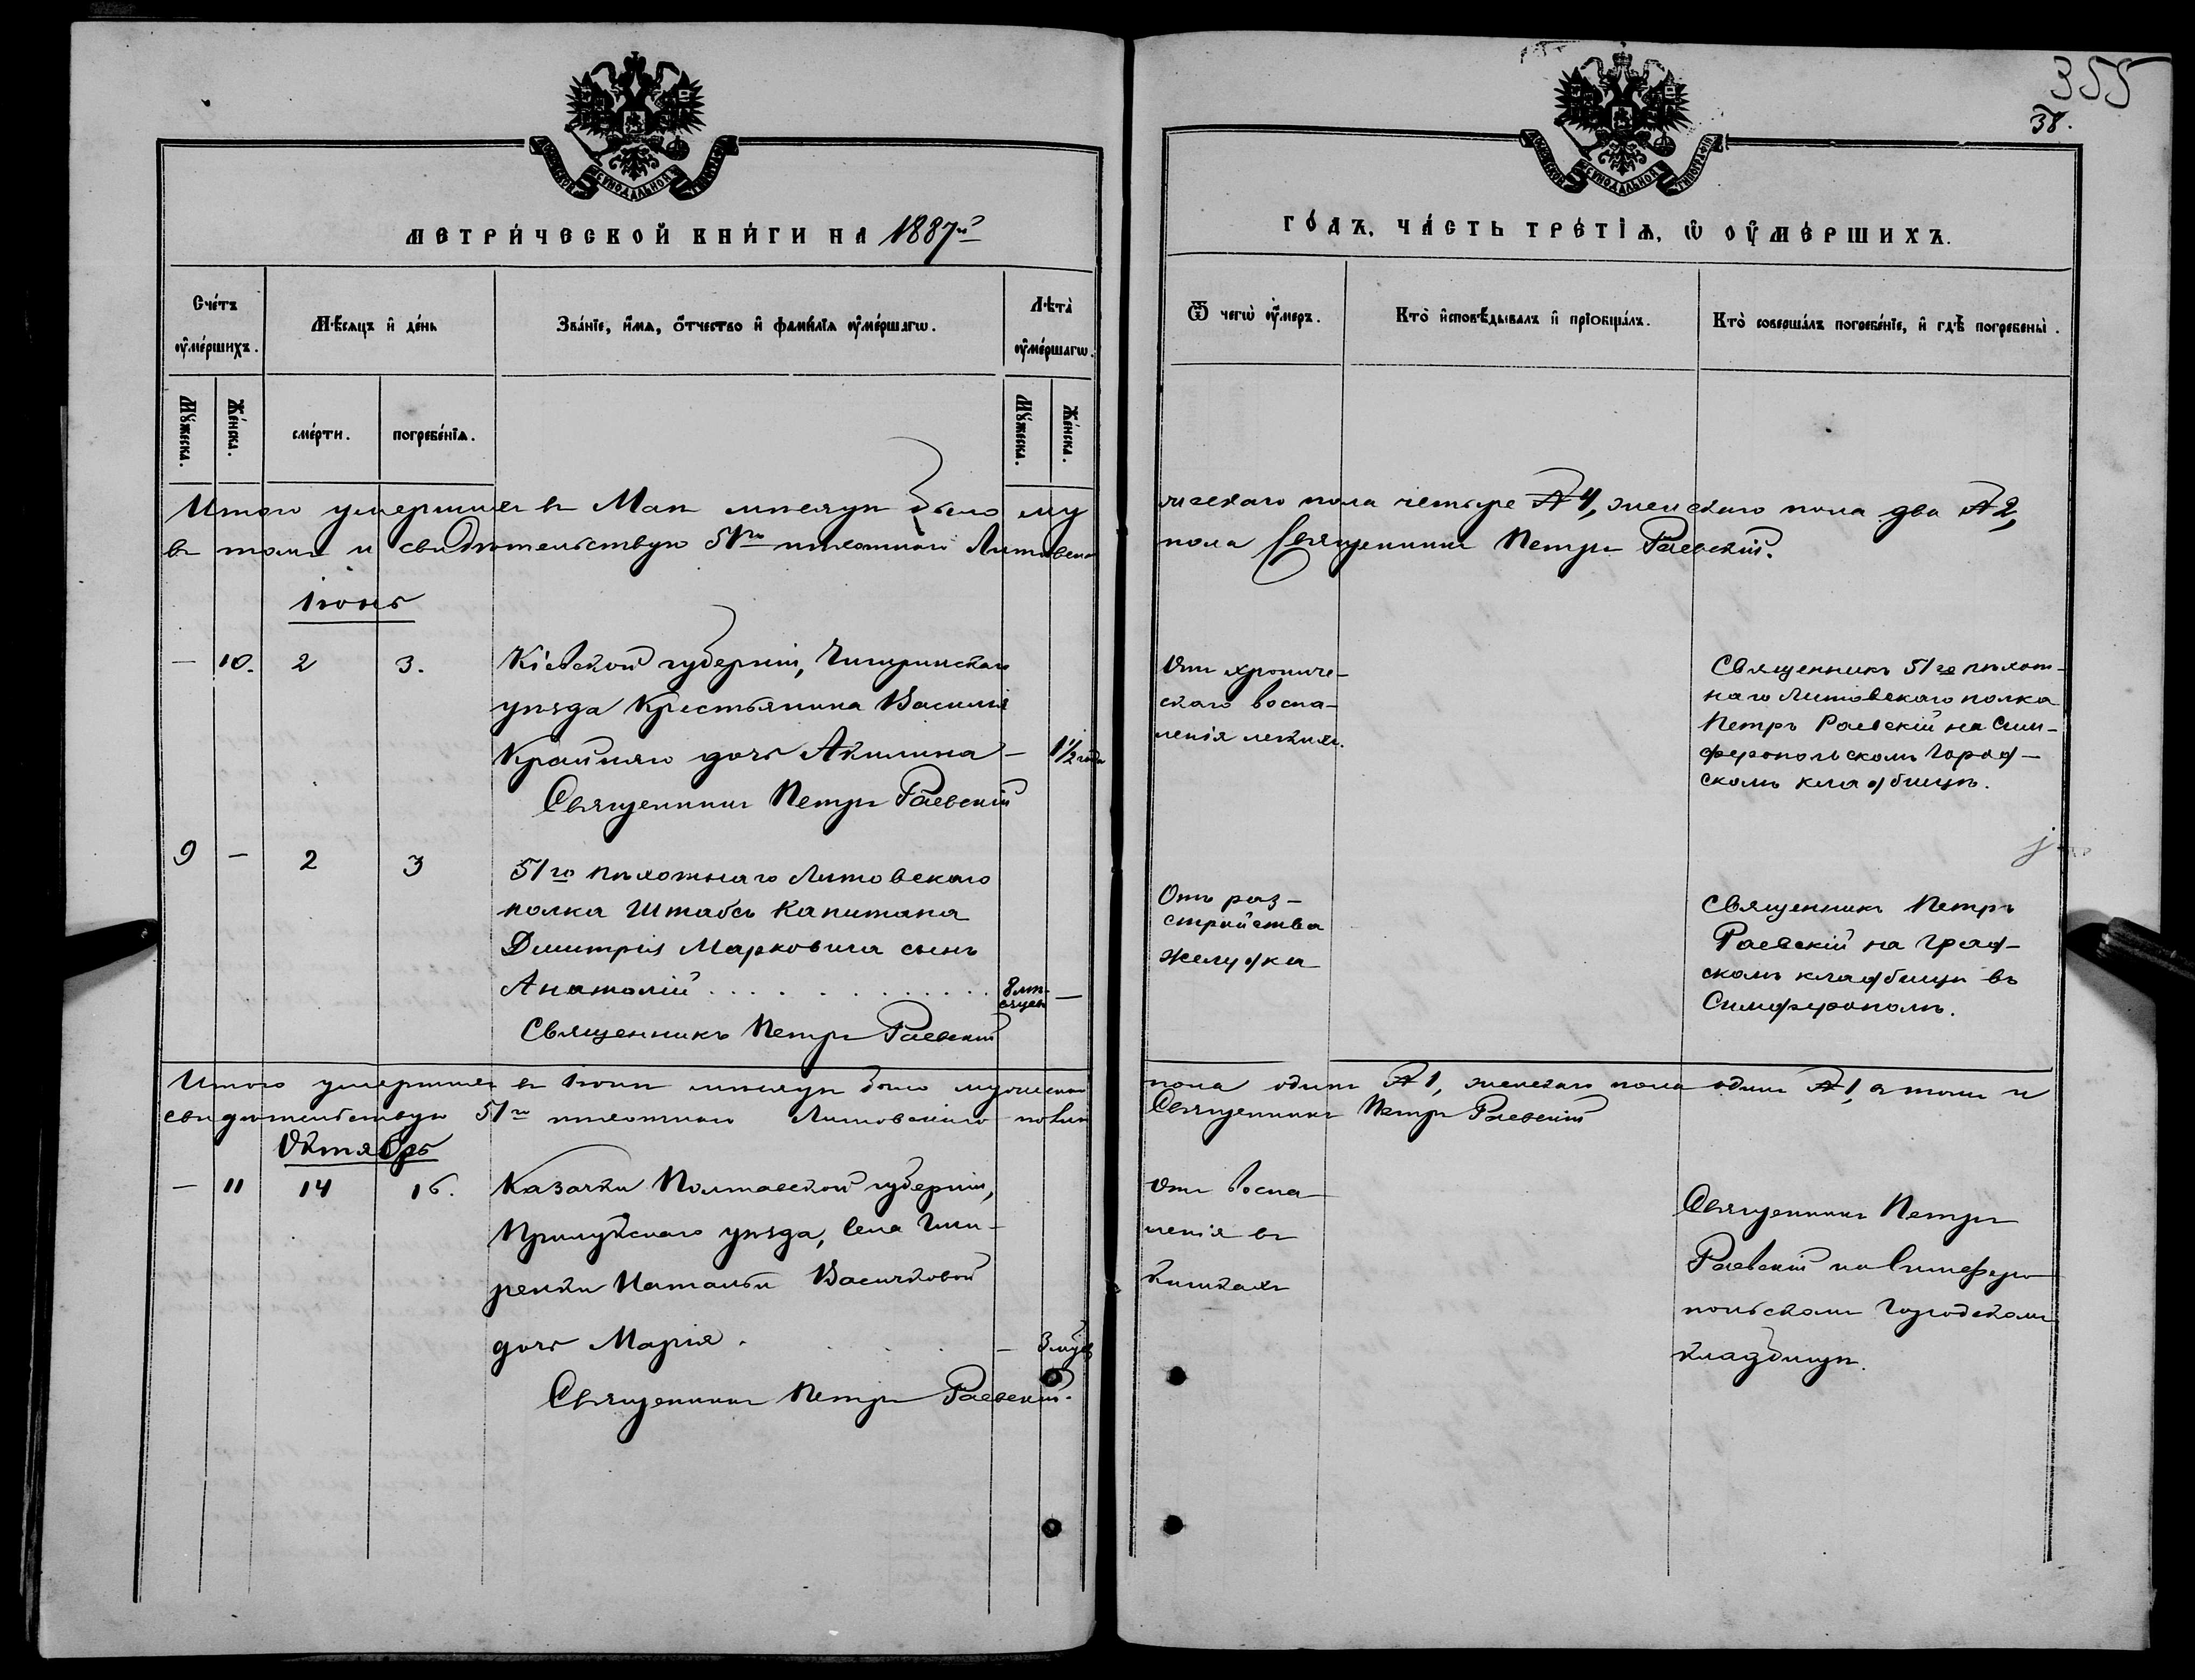 355
38.
СИНОДАЛЬНОЙ
СИНОДАЛЬНОЙ
МЕТРИ́ЧЕСКОЙ КНИ́ГИ НА 1887й
ГО́ДЪ, ЧА́СТЬ ТРЕ́ТІѦ, Ѡ ОУ҆МЕ́РШИХЪ.
Сче́тъ
оу҆ме́ршихъ.
Мѣ́сѧцъ и҆ де́нь
Зва́нїе, и҆́мѧ, ѻ҆́тчество и҆ фами́лїѧ оу҆ме́ршагѡ.
Лѣ́та
оу҆ме́ршагѡ.
Ѿ чегѡ̀ оу҆́меръ.
Кто̀ и҆сповѣ́дывалъ и҆ прїѻбща́лъ.
Кто̀ соверша́лъ погребе́нїе, и҆ гдѣ̀ погребены̀.
Мꙋ́жеска.
Же́нска.
сме́рти.
погребе́нїѧ.
Мꙋ́жеска.
Же́нска.
Итого умершихъ въ Маѣ мѣсяцѣ было му
жескаго пола четыре № 4, женскаго пола два № 2,
въ томъ и свидѣтельствую 51го пѣхотнаго Литовскаго
полка Священникъ Петръ Раевскій.
Іюнь
— 10. 2 3. Кіевской губерніи, Чигиринскаго
уѣзда крестьянина Василія
Крайняго дочь Акилина — 1½ года
Священникъ Петръ Раевскій
Отъ хрониче-
скаго воспа-
ленія легкихъ.
Священникъ 51го пѣхот-
наго Литовскаго полка
Петръ Раевскій на Сим-
феропольскомъ город-
скомъ кладбищѣ.
9 — 2 3 51го пѣхотнаго Литовскаго
полка Штабсъ Капитана
Димитрія Марковича сынъ
Анатолій . . . . . 8 мѣ-
сяцев —
Священникъ Петръ Раевскій
Отъ раз-
стройства
желудка
Священникъ Петръ
Раевскій на град-
скомъ кладбищѣ въ
Симферополѣ.
Итого умершихъ въ Іюнѣ мѣсяцѣ было мужескаго
пола одинъ № 1, женскаго пола одинъ № 1, въ томъ и
свидѣтельствую 51го пѣхотнаго Литовскаго полка
Священникъ Петръ Раевскій
Октябрь
— 11 14 16. Казачки Полтавской губерніи,
Прилукскаго уѣзда, села
Натальи Васичковой
дочь Марія . . . . — 3
Священникъ Петръ Раевскій.
Отъ воспа
ленія въ
кишкахъ
Священникъ Петръ
Раевскій на Симферо
польскомъ городскомъ
кладбищѣ.